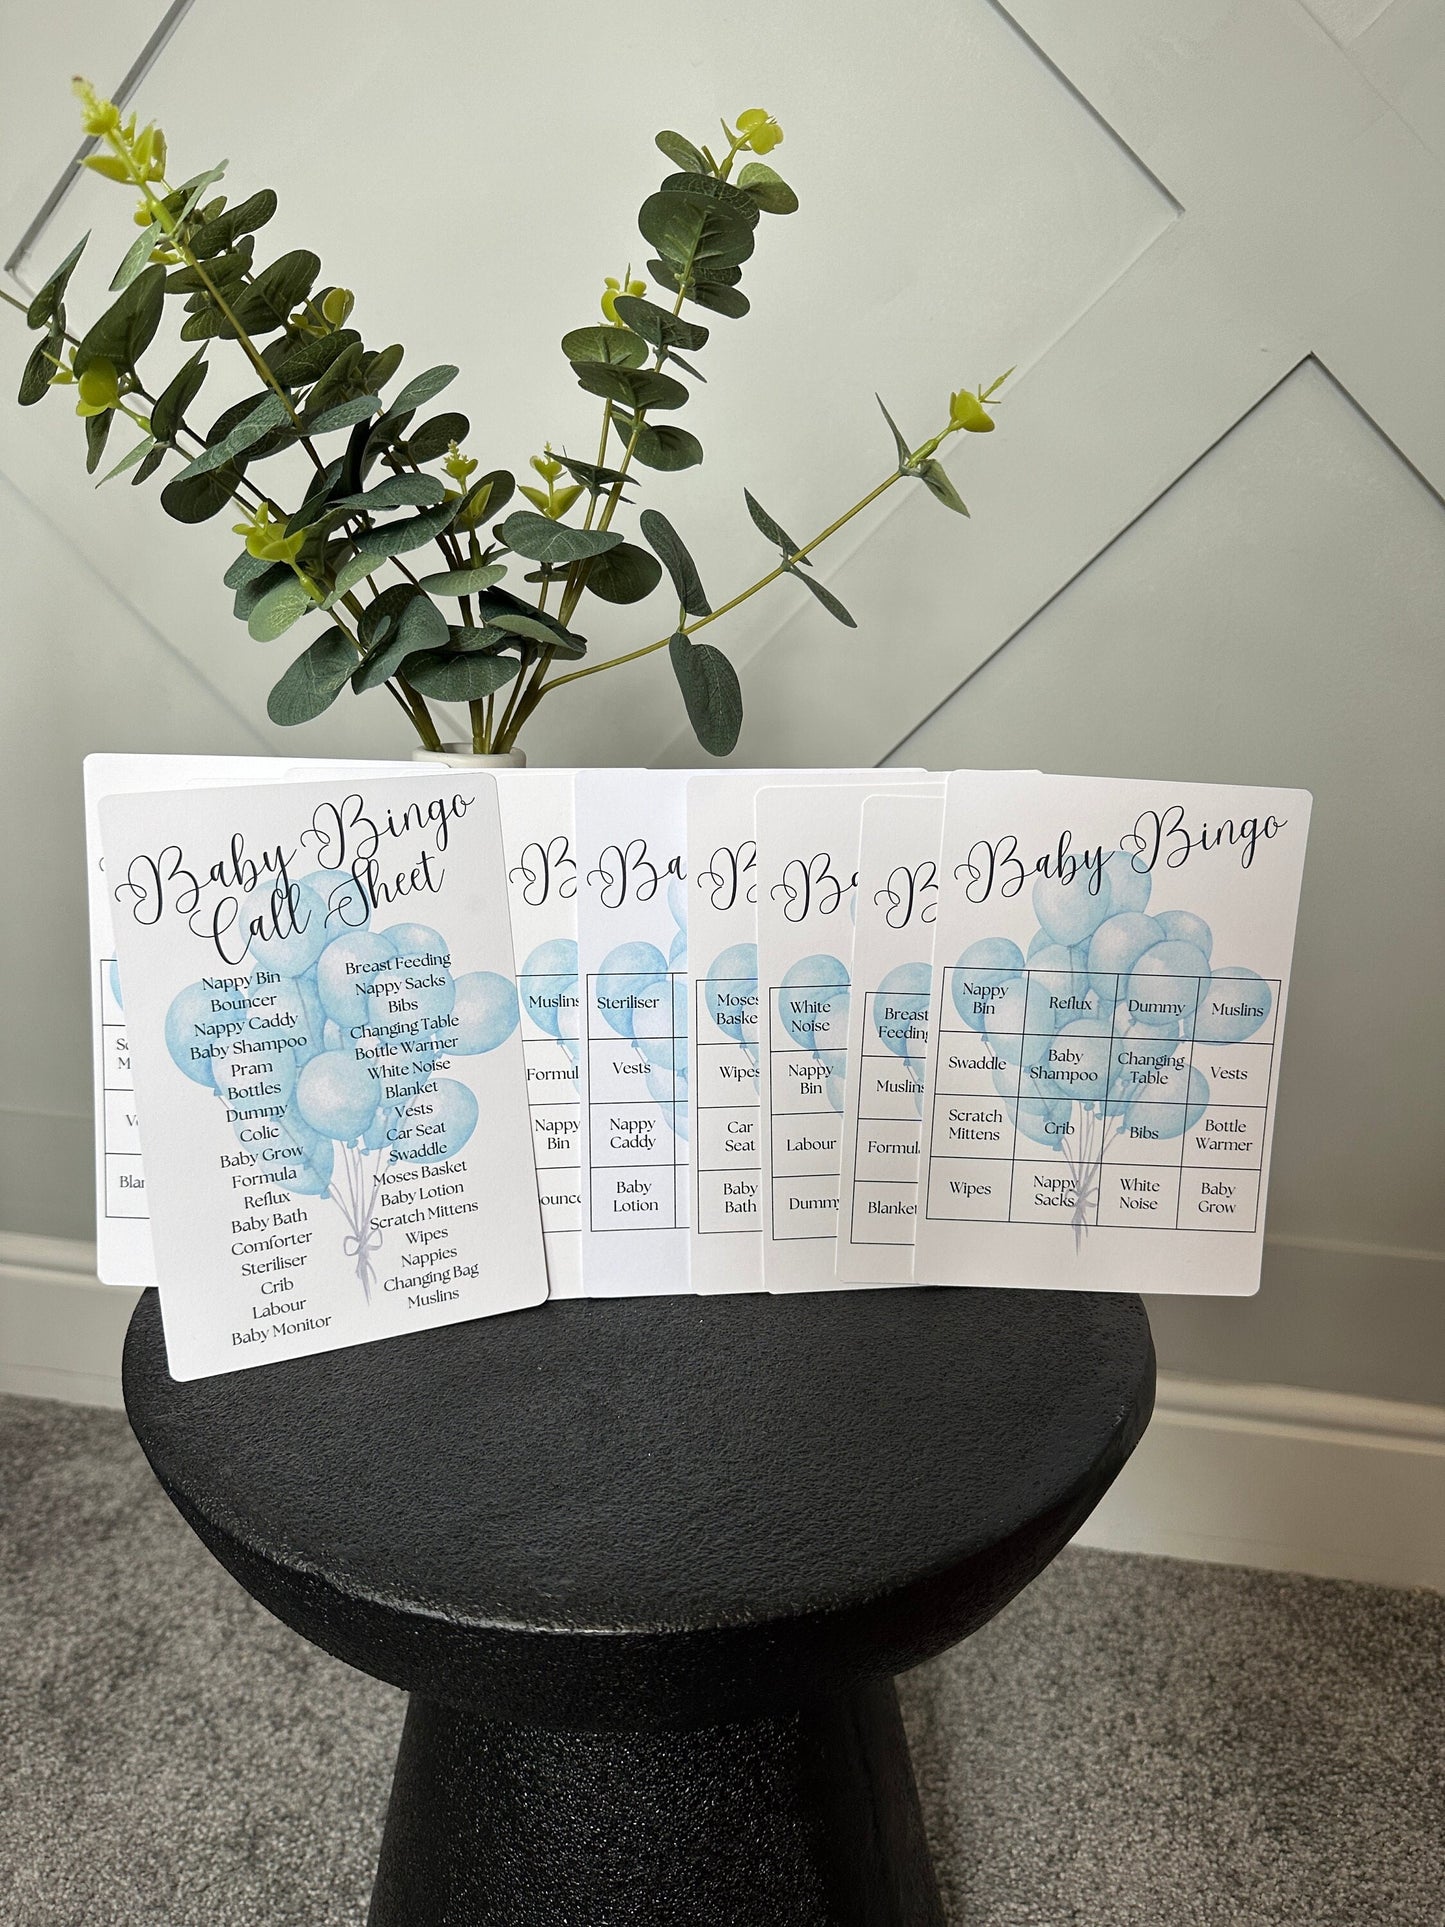 Baby Bingo
Call Sheet
Nappy Bin
Bouncer
Nappy Caddy
Baby Shampoo
Pram
Bottles
Dummy
Colic
Baby Grow
Formula
Reflux
Baby Bath
Comforter
Steriliser
Crib
Labour
Baby Monitor
Breast Feeding
Nappy Sacks
Bibs
Changing Table
Bottle Warmer
White Noise
Blanket
Vests
Car Seat
Swaddle
Moses Basket
Baby Lotion
Scratch Mittens
Wipes
Nappies
Changing Bag
Muslins
Muslins
Nappy
Bin
Ba
Steriliser
Vests
Nappy
Caddy
Baby
Lotion
Moses
Wipes
Car
Seat
Baby
Bath
White
Noise
Nappy
Bin
Labour
Dummy
Breast
Feeding
Muslins
Blanket
Baby Bingo
Nappy
Bin
Reflux
Dummy
Muslins
Swaddle
Baby
Shampoo
Changing
Table
Vests
Scratch
Mittens
Crib
Bibs
Bottle
Warmer
Wipes
Nappy
Sacks
White
Noise
Baby
Grow